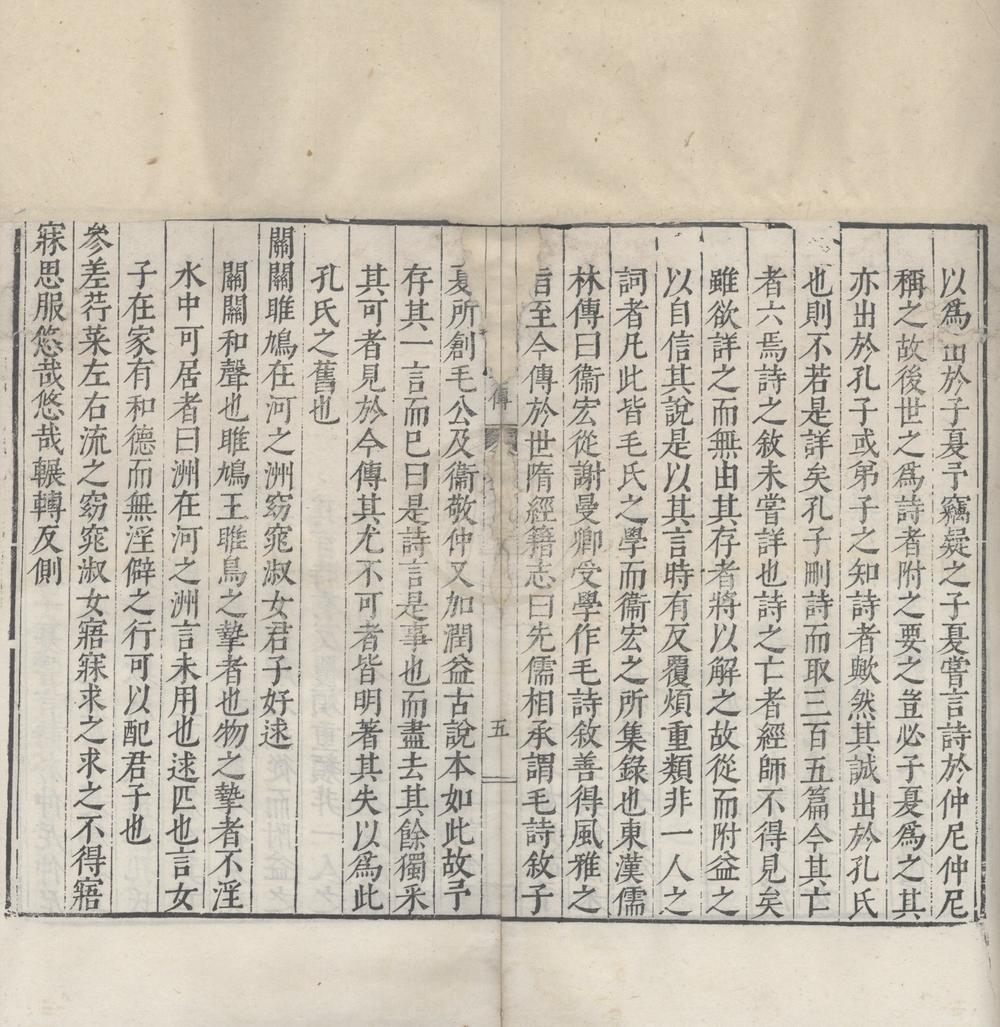 以爲出於子夏予竊疑之子夏嘗言詩於仲尼仲尼
稱之故後世之爲詩者附之要之豈必子夏爲之其
亦出於孔子或弟子之知詩者歟然其誠出於孔氏
也則不若是詳矣孔子刪詩而取三百五篇今其亡
者六焉詩之敘未嘗詳也詩之亡者經師不得見矣
雖欲詳之而無由其存者將以解之故從而附益之
以自信其說是以其言時有反覆煩重類非一人之
詞者凡此皆毛氏之學而衞宏之所集錄也東漢儒
林傳曰衞宏從謝曼卿受學作毛詩敘善得風雅之
旨至今傳於世隋經籍志曰先儒相承謂毛詩敘子
傳
五
夏所創毛公及衞敬仲又加潤益古說本如此故予
存其一言而已曰是詩言是事也而盡去其餘獨采
其可者見於今傳其尤不可者皆明著其失以爲此
孔氏之舊也
關關雎鳩在河之洲窈窕淑女君子好逑
關關和聲也雎鳩王雎鳥之摯者也物之摯者不淫
水中可居者曰洲在河之洲言未用也逑匹也言女
子在家有和德而無淫僻之行可以配君子也
參差荇菜左右流之窈窕淑女寤寐求之求之不得寤
寐思服悠哉悠哉輾轉反側